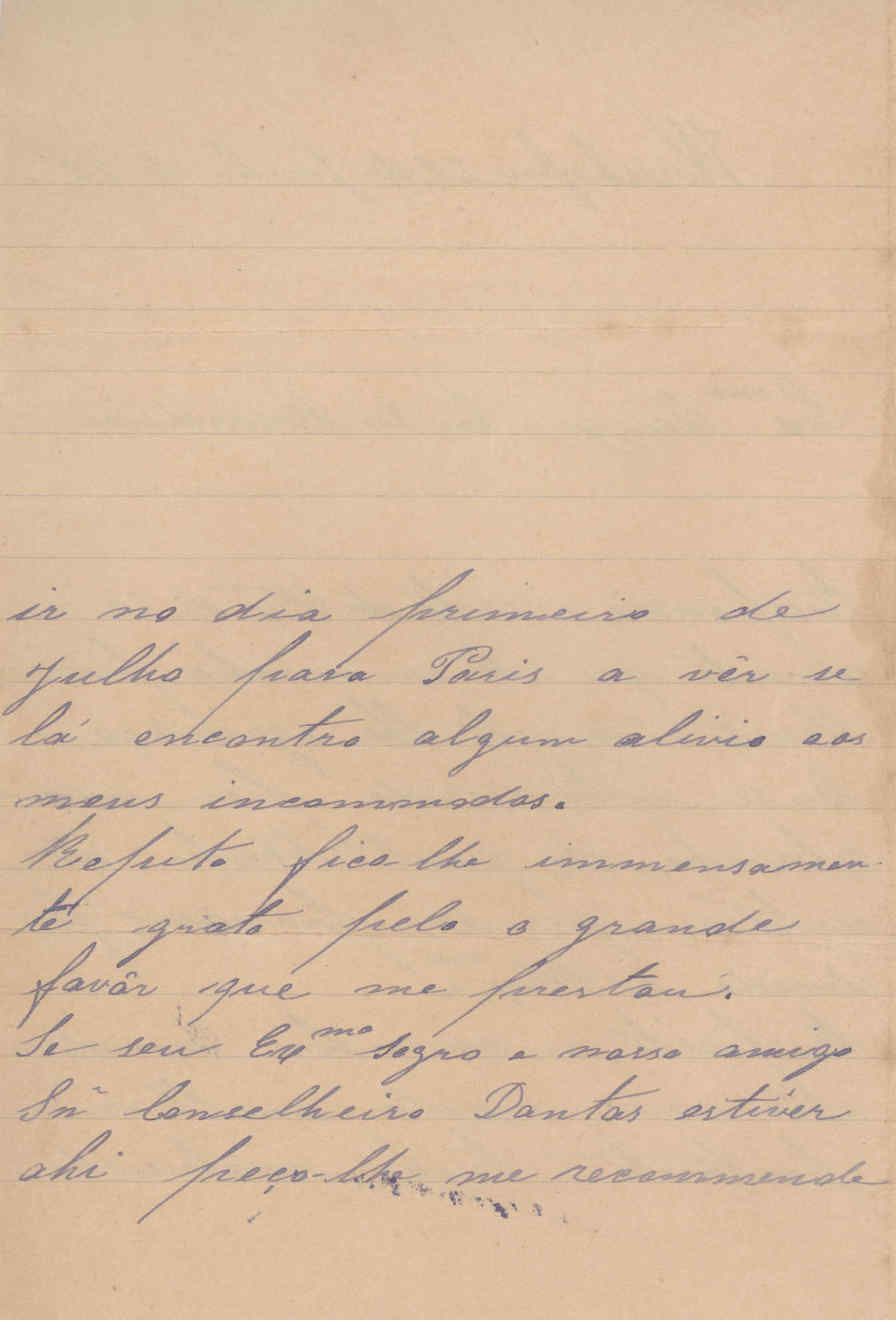 ir no dia primeiro de
Julho para Paris a vêr se
lá encontro algum alivio aos
meus incommodos.
Reputo fico-lhe immensamen-
te grato pelo o grande
favôr que me prestou.
Se seu Ex^mo Sogro e nosso amigo
Snr̃ Conselheiro Dantas estiver
ahi peço-lhe me recommende